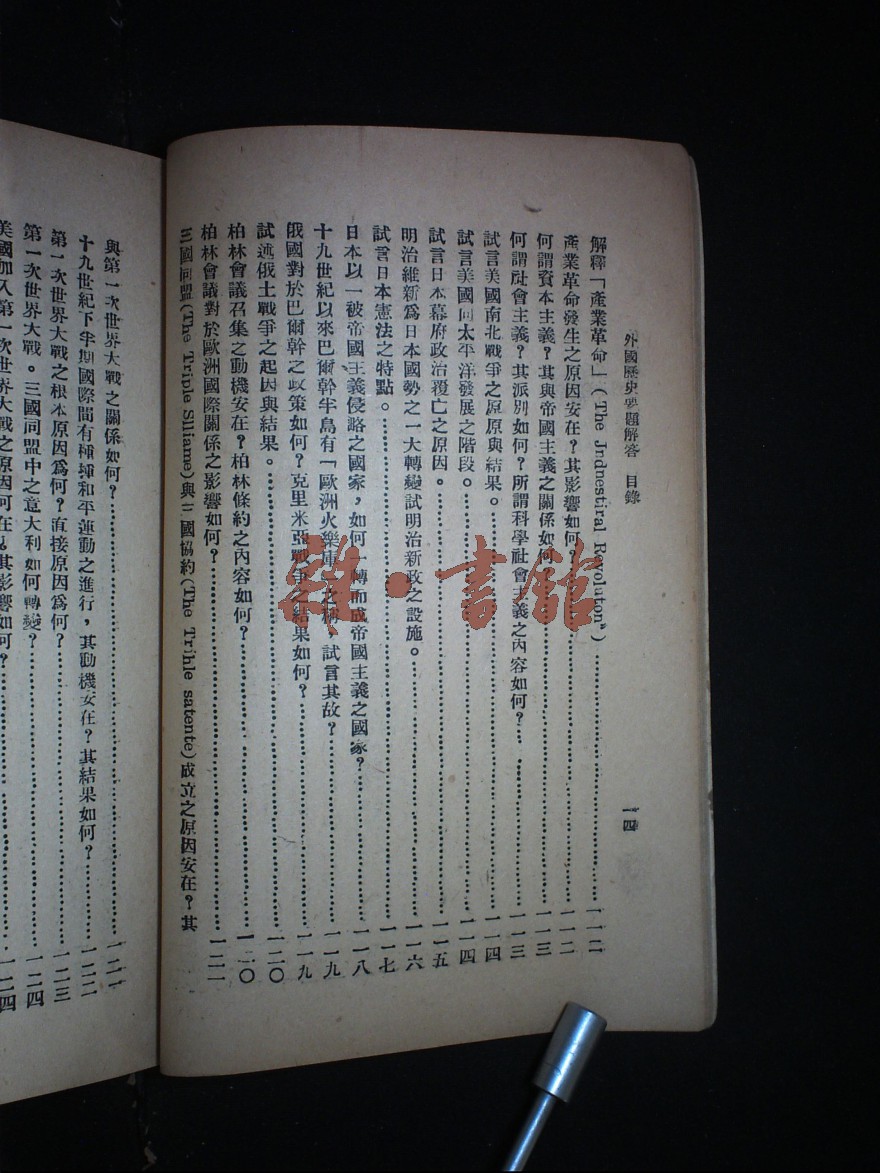 外國歷史要題解答 目錄
一四
解釋「產業革命」(The Jndnestiral Revoluton")……一一二
產業革命發生之原因安在?其影響如何?……一一二
何謂資本主義?其與帝國主義之關係如何?……一一三
何謂社會主義?其派別如何?所謂科學社會主義之內容如何?……一一三
試言美國南北戰爭之原原與結果。……一一四
試言美國向太平洋發展之階段。……一一四
試言日本幕府政治覆亡之原因。……一一五
明治維新為日本國勢之一大轉變試明治新政之設施。……一一六
試言日本憲法之特點。……一一七
日本以一被帝國主義侵略之國家,如何一轉而成帝國主義之國家?……一一八
十九世紀以來巴爾幹半島有「歐洲火藥庫」之稱,試言其故?……一一九
俄國對於巴爾幹之政策如何?克里米亞戰爭之結果如何?……一一九
試述俄土戰爭之起因與結果。……一二〇
柏林會議召集之動機安在?柏林條約之內容如何?……一二〇
柏林會議對於歐洲國際關係之影響如何?……一二一
三國同盟(The Triple Slliame)與三國協約(The Trihle satente)成立之原因安在?其
與第一次世界大戰之關係如何?……一二一
十九世紀下半期國際間有種種和平運動之進行,其動機安在?其結果如何?……一二二
第一次世界大戰之根本原因為何?直接原因為何?……一二三
第一次世界大戰。三國同盟中之意大利如何轉變?……一二四
美國加入第一次世界大戰之原因何在?其影響如何?……一二四
雜·書館